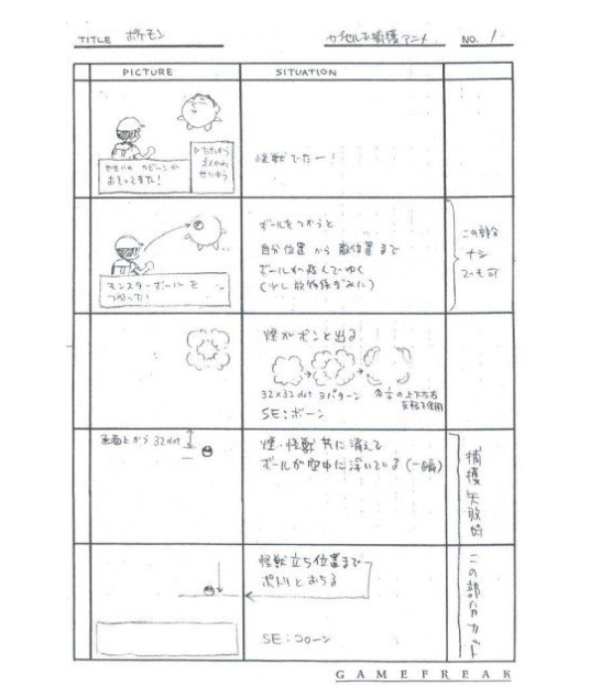 TITLE ポケモン
カプセルで捕獲アニメ
NO. 1
PICTURE
SITUATION
やせいの
おそってきた!
▷たたかう
怪獣でたー!
モンスターボールを
つかった!
ボールをつかうと
自分位置から敵位置まで
ボールが飛んでゆく
(少し放物線ぎみに)
この部分
ナシ
でも可
煙がボンと出る
32×32dot 3パターン
の上下左右
反転を使用
SE:ボーン
画面上から 32dot
煙・怪獣共に消えて
ボールが空中に浮いている(一瞬)
捕獲失敗時
怪獣立ち位置まで
ポトルとおちる
SE:コローン
この部分カット
GAMEFREAK